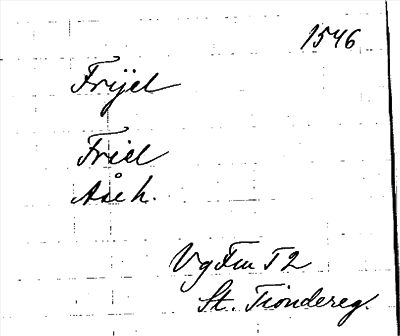 1546
Frijel
Friel
Åse h.
Vg Fru 52
St. Tiondereg.